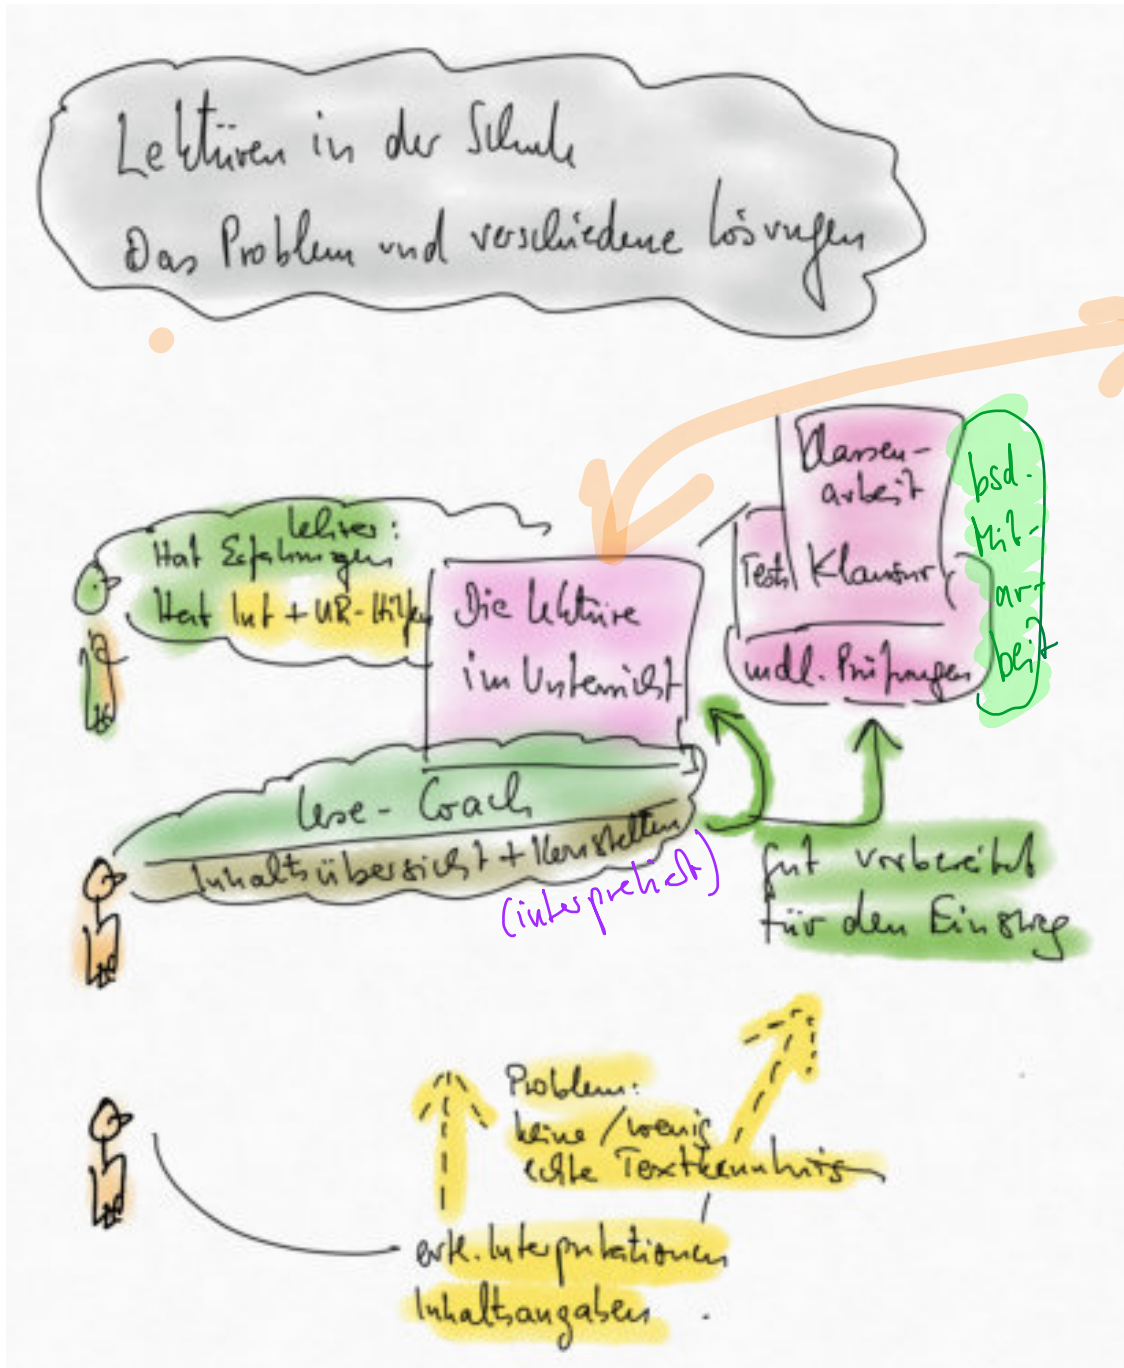 Lektüren in der Schule
Das Problem und verschiedene Lösungen
Lehrer:
Hat Erfahrungen
Hat Int + UR-Hilfen
Die Lektüre
im Unterricht
Klassen-
arbeit
Tests Klausur
mdl. Prüfungen
bsd.
Mit-
ar-
beit
Lese-Coach
Inhaltsübersicht + Kernstellen
(interpretiert)
gut vorbereitet
für den Einstieg
Problem:
keine / wenig
echte Textkenntnis
Interpretationen
Inhaltsangaben